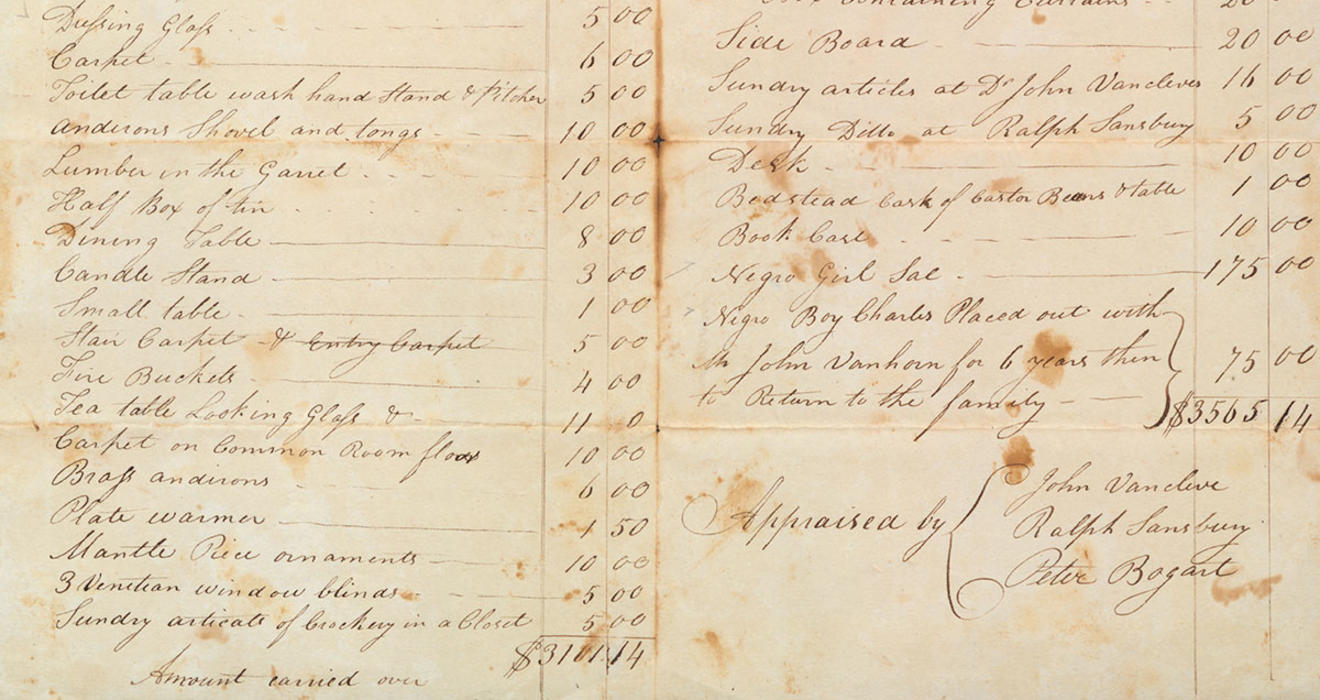 Dressing Glass 5 00
Carpet 6 00
Toilet table wash hand Stand & Pitcher 5 00
Andirons Shovel and tongs 10 00
Lumber in the Garret 10 00
Half Box of tin 10 00
Dining Table 8 00
Candle Stand 3 00
Small table 1 00
Stair Carpet & Entry Carpet 5 00
Fire Buckets 4 00
Tea table Looking Glass & 11 0
Carpet on Common Room floor 10 00
Brass andirons 6 00
Plate warmer 1 50
Mantle Piece ornaments 10 00
3 Venetian window blinds 5 00
Sundry articals of Crockery in a Closet 5 00
$3101 14
Amount carried over
Box Containing Curtains 20
Side Board 20 00
Sundry articles at Dr John Vancleves 16 00
Sundry Ditto at Ralph Sansbury 5 00
Desk 10 00
Bedstead Cask of Castor Beans & table 1 00
Book Case 10 00
Negro Girl Sal 175 00
Negro Boy Charles Placed out with
Mr John Vanhorn for 6 years then 75 00
to Return to the family
$3565 14
Appraised by
John Vancleve
Ralph Sansbury
Peter Bogart